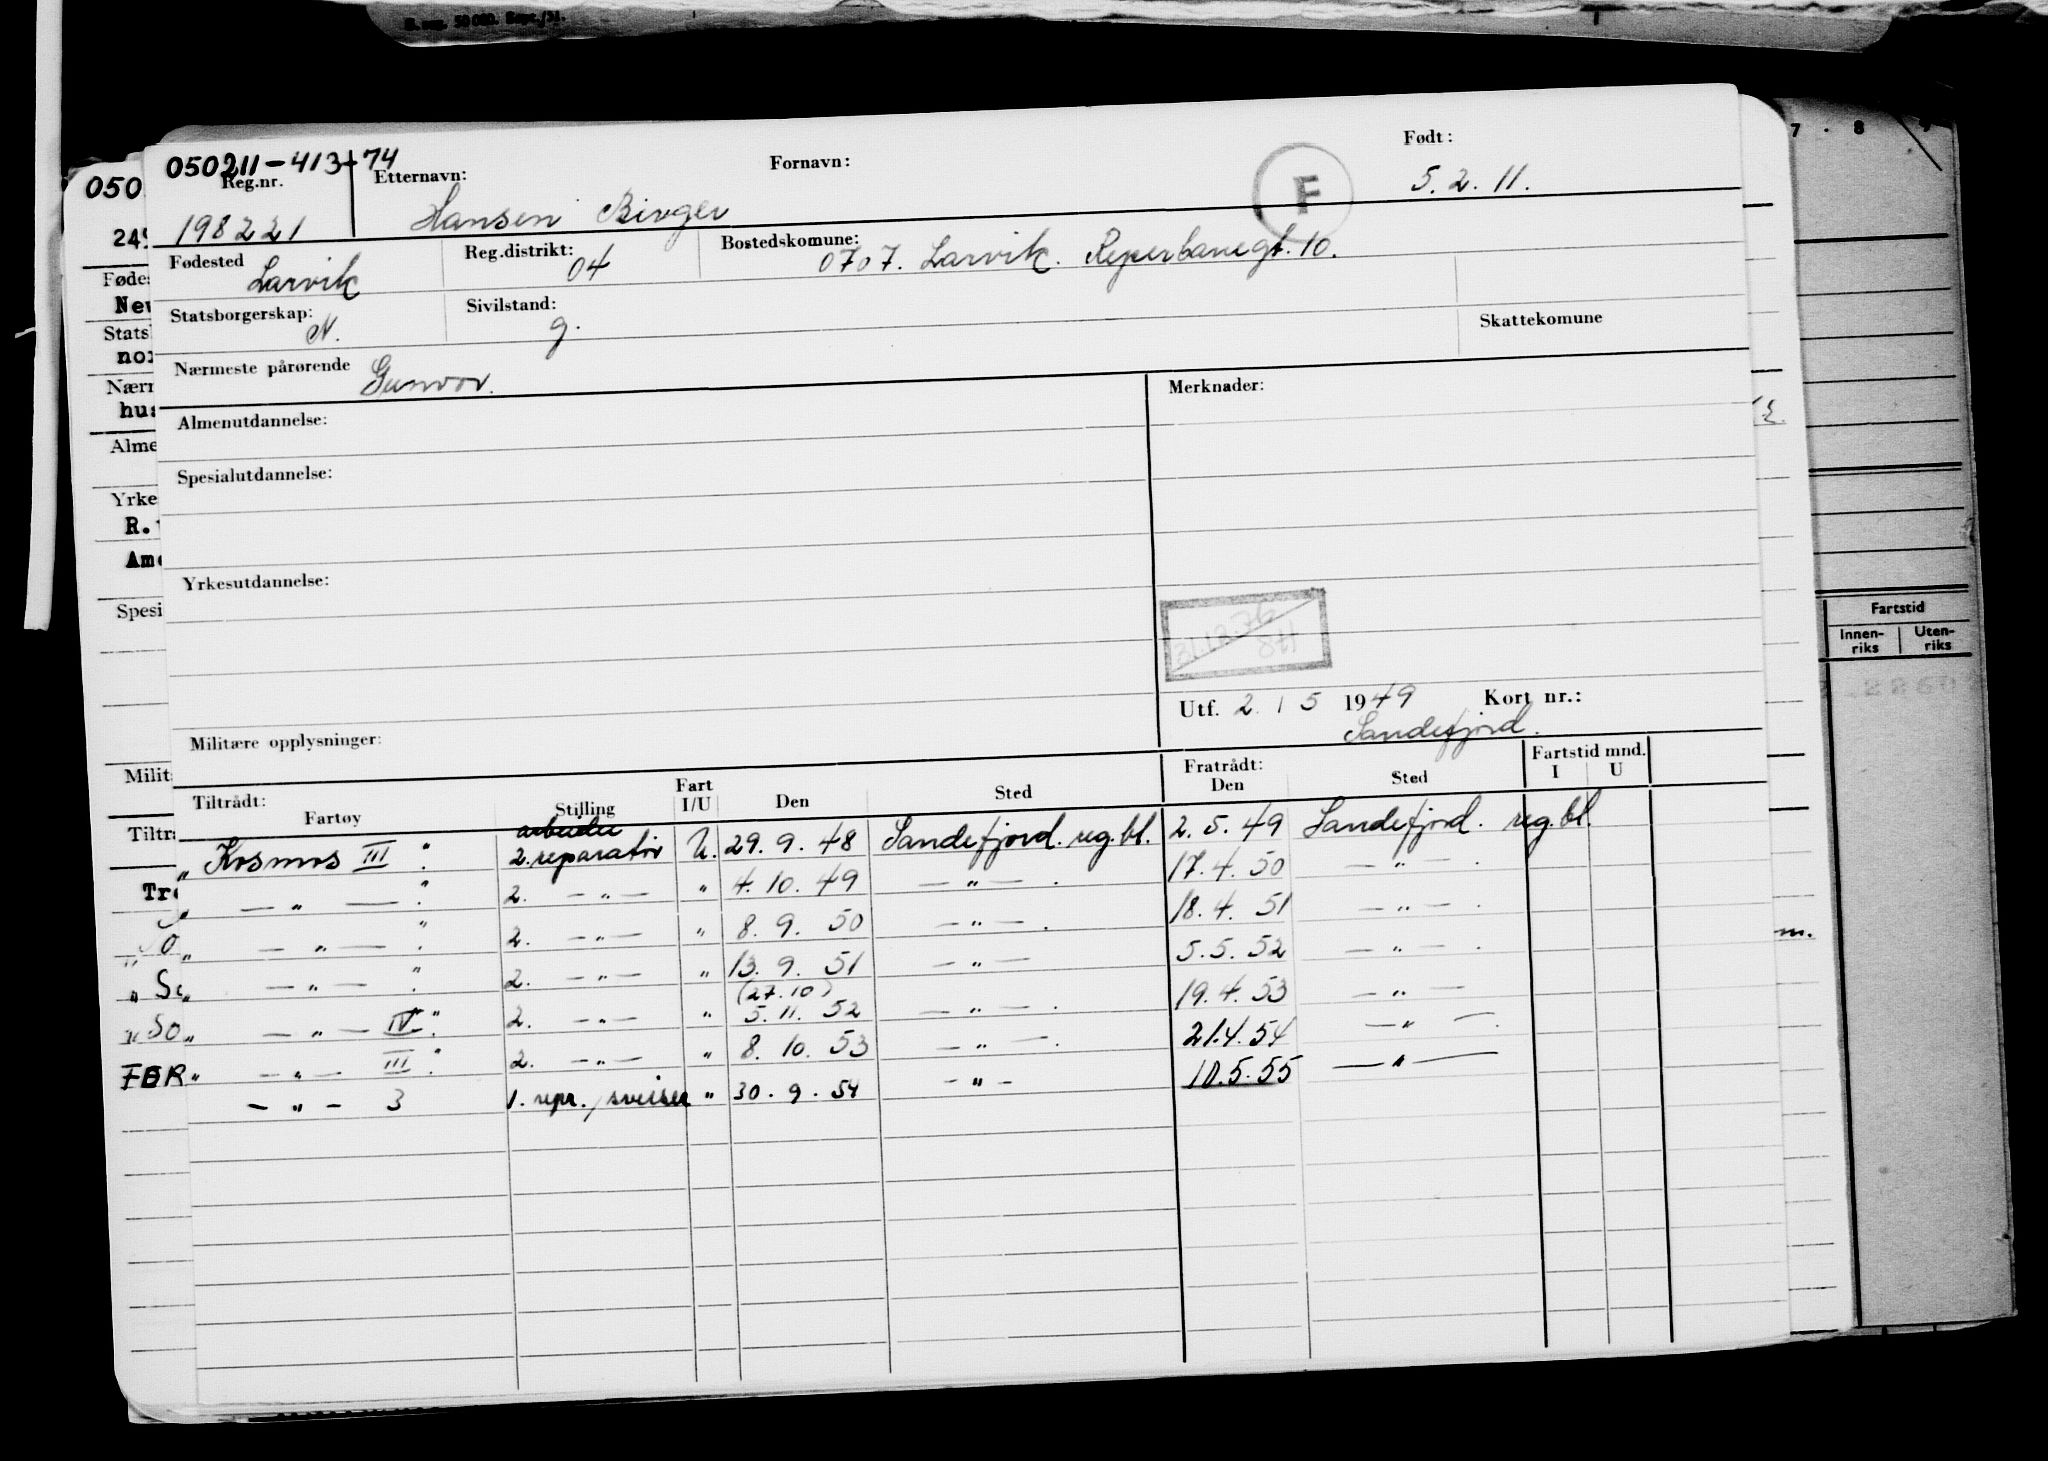 B. reg. 50 000. Sept./51.
7 . 8
050211-413+74
Reg.nr. Etternavn: Fornavn: Født:
198221 Hansen Birger F 5. 2. 11.
Fødested Reg.distrikt: Bostedskomune:
Larvik 04 0707. Larvik. Reperbanegt. 10.
Statsborgerskap: Sivilstand: Skattekomune
N. g.
Nærmeste pårørende Gunvor.
Merknader:
Almenutdannelse:
Spesialutdannelse:
Yrkesutdannelse:
31.12.76
Utf. 2. / 5 1949 Kort nr.:
Sandefjord.
Militære opplysninger:
Tiltrådt: Fratrådt: Fartstid mnd.
Fartøy Stilling Fart I/U Den Sted Den Sted I U
arbeider
„ Kosmos III ". 2. reparatør U. 29. 9. 48 Sandefjord. reg.bl. 2. 5. 49 Sandefjord. reg.bl.
— " — ". 2. — " — " 4. 10. 49 — " — . 17. 4. 50 — " — .
„ — " — ". 2. — " — " 8. 9. 50 — " — . 18. 4. 51 — " — .
„ — " — ". 2. — " — " 13. 9. 51 — " — 5. 5. 52 — " — .
(27.10)
„ — " — IV ". 2. — " — " 5. 11. 52 — " — . 19. 4. 53 — " —
„ — " — III ". 2. — " — " 8. 10. 53 — " — . 21.4.54 — " — .
— " — 3 1. repr./sveiser " 30. 9. 54 — " — 10.5.55 — " —
050
249
Fødes
New
Statsl
nor
Nærn
hus
Alme
Yrke
R.
Ame
Spesi
Milit
Tiltr
Tr
So
FBR
m.
Fartstid
Innen-riks Uten-riks